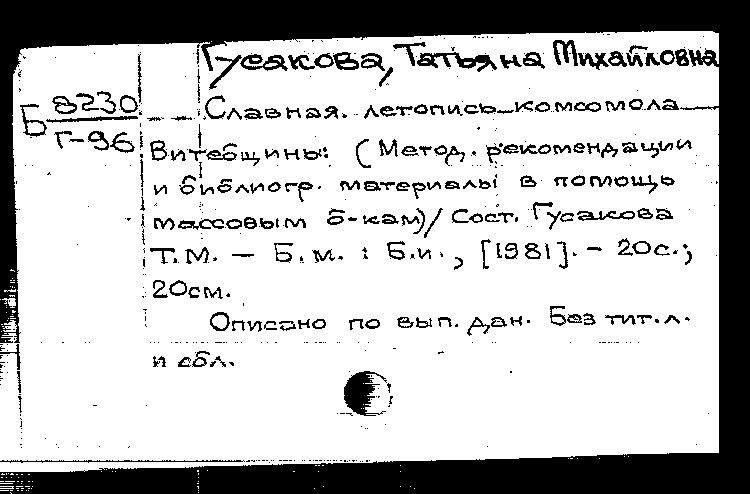 Гусакова, Татьяна Михайловна
Б 8230
Г-96
Славная летопись комсомола
Витебщины: (Метод. рекомендации
и библиогр. материалы в помощь
массовым б-кам)/ Сост. Гусакова
Т.М. — Б.м. : Б.и., [1981]. - 20с.;
20см.
Описано по вып. дан. Без тит.л.
и обл.